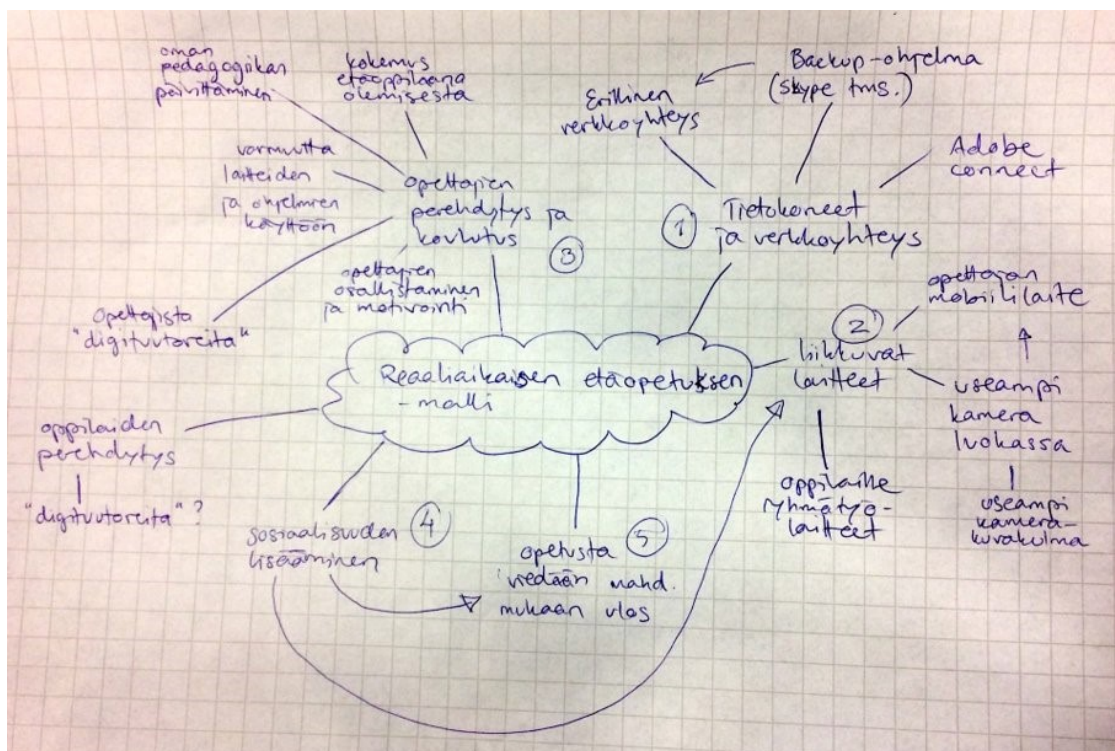 oman
pedagogiikan
päivittäminen
kokemus
etäoppilaana
olemisesta
varmuutta
laitteiden
ja ohjelmien
käyttöön
opettajien
perehdytys ja
koulutus
3
opettajien
osallistaminen
ja motivointi
Opettajista
"digituutoreita"
Backup-ohjelma
(skype tms.)
Erillinen
verkkoyhteys
Adobe
connect
1
Tietokoneet
ja verkkoyhteys
opettajan
mobiililaite
2
liikkuvat
laitteet
useampi
kamera
luokassa
useampi
kamera-
kuvakulma
oppilaille
ryhmätyö-
laitteet
Reaaliaikaisen etäopetuksen
-malli
oppilaiden
perehdytys
"digituutoreita"?
sosiaalisuuden
lisääminen
4
5
opetusta
viedään mahd.
mukaan ulos